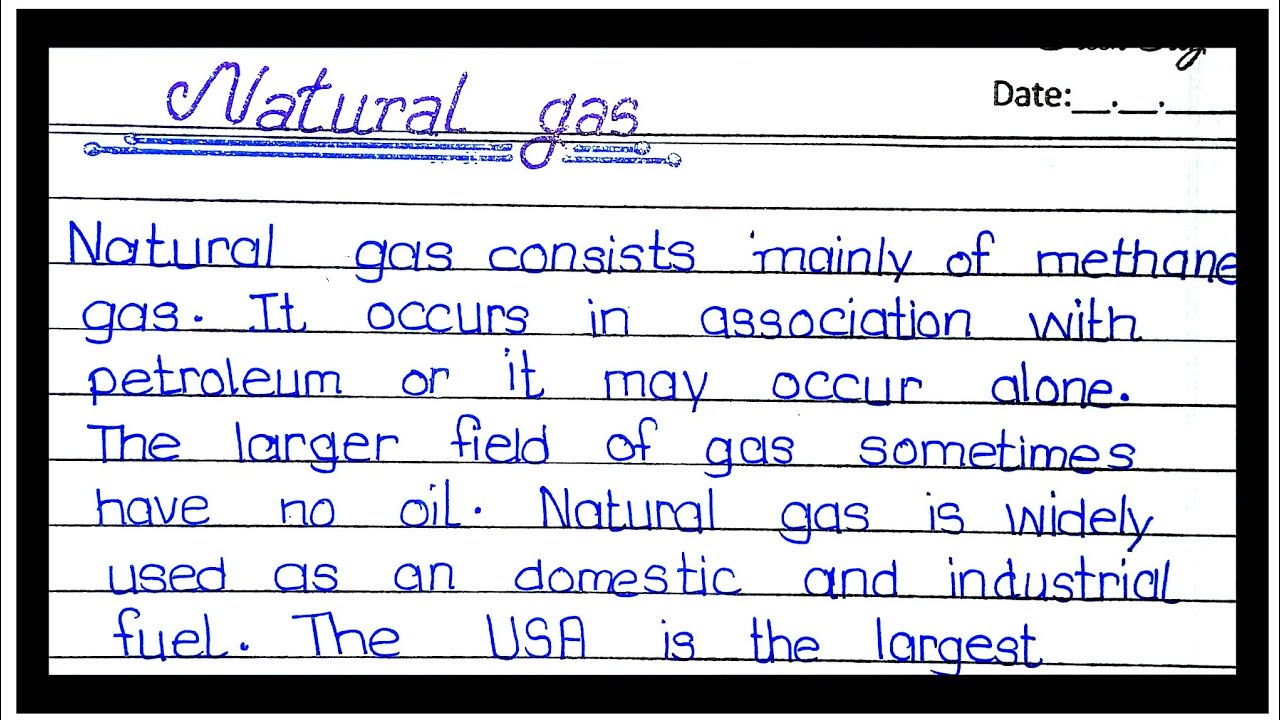 Date:__.__.____
Natural gas
Natural gas consists mainly of methane
gas. It occurs in association with
petroleum or it may occur alone.
The larger field of gas sometimes
have no oil. Natural gas is widely
used as an domestic and industrial
fuel. The USA is the largest